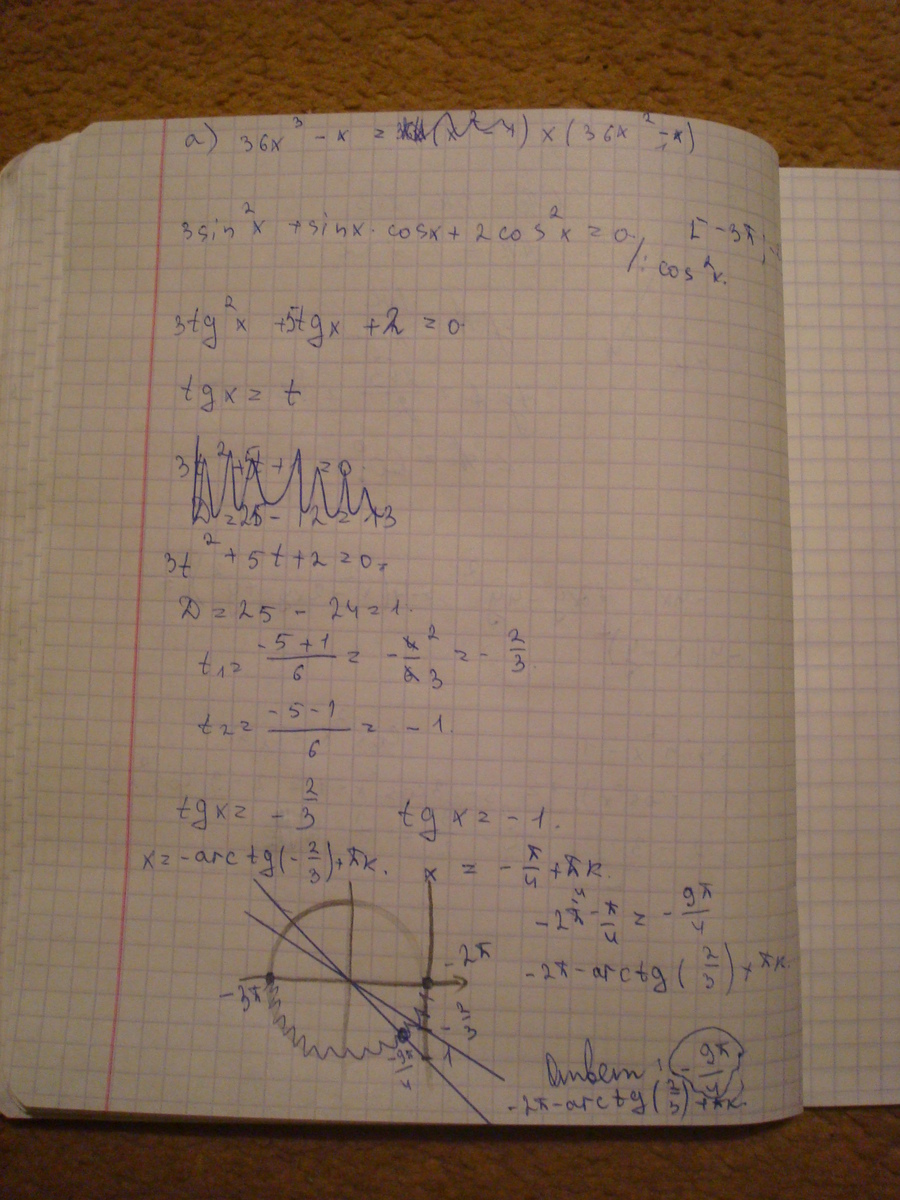 а) 36x³ - x = (x² - 1) x (36x² - 1)
3sin²x + sinx · cosx + 2cos²x = 0. [-3π;
/: cos²x.
3tg²x + 5tgx + 2 = 0
tgx = t
3t² + 5t + 1 = 0
D = 25 - 12 = 13
3t² + 5t + 2 = 0.
D = 25 - 24 = 1.
t₁ = (-5+1)/6 = -4/6 2 3 = -2/3.
t₂ = (-5-1)/6 = -1.
tgx = -2/3 tgx = -1.
x = -arctg(-2/3) + πk. x = -π/4 + πk.
-2π - π/4 = -9π/4
-2π - arctg(2/3) + πk.
-2π
-3π
-2/3
-1
-9π/4
Ответ: -9π/4
-2π - arctg(2/3) + πk.